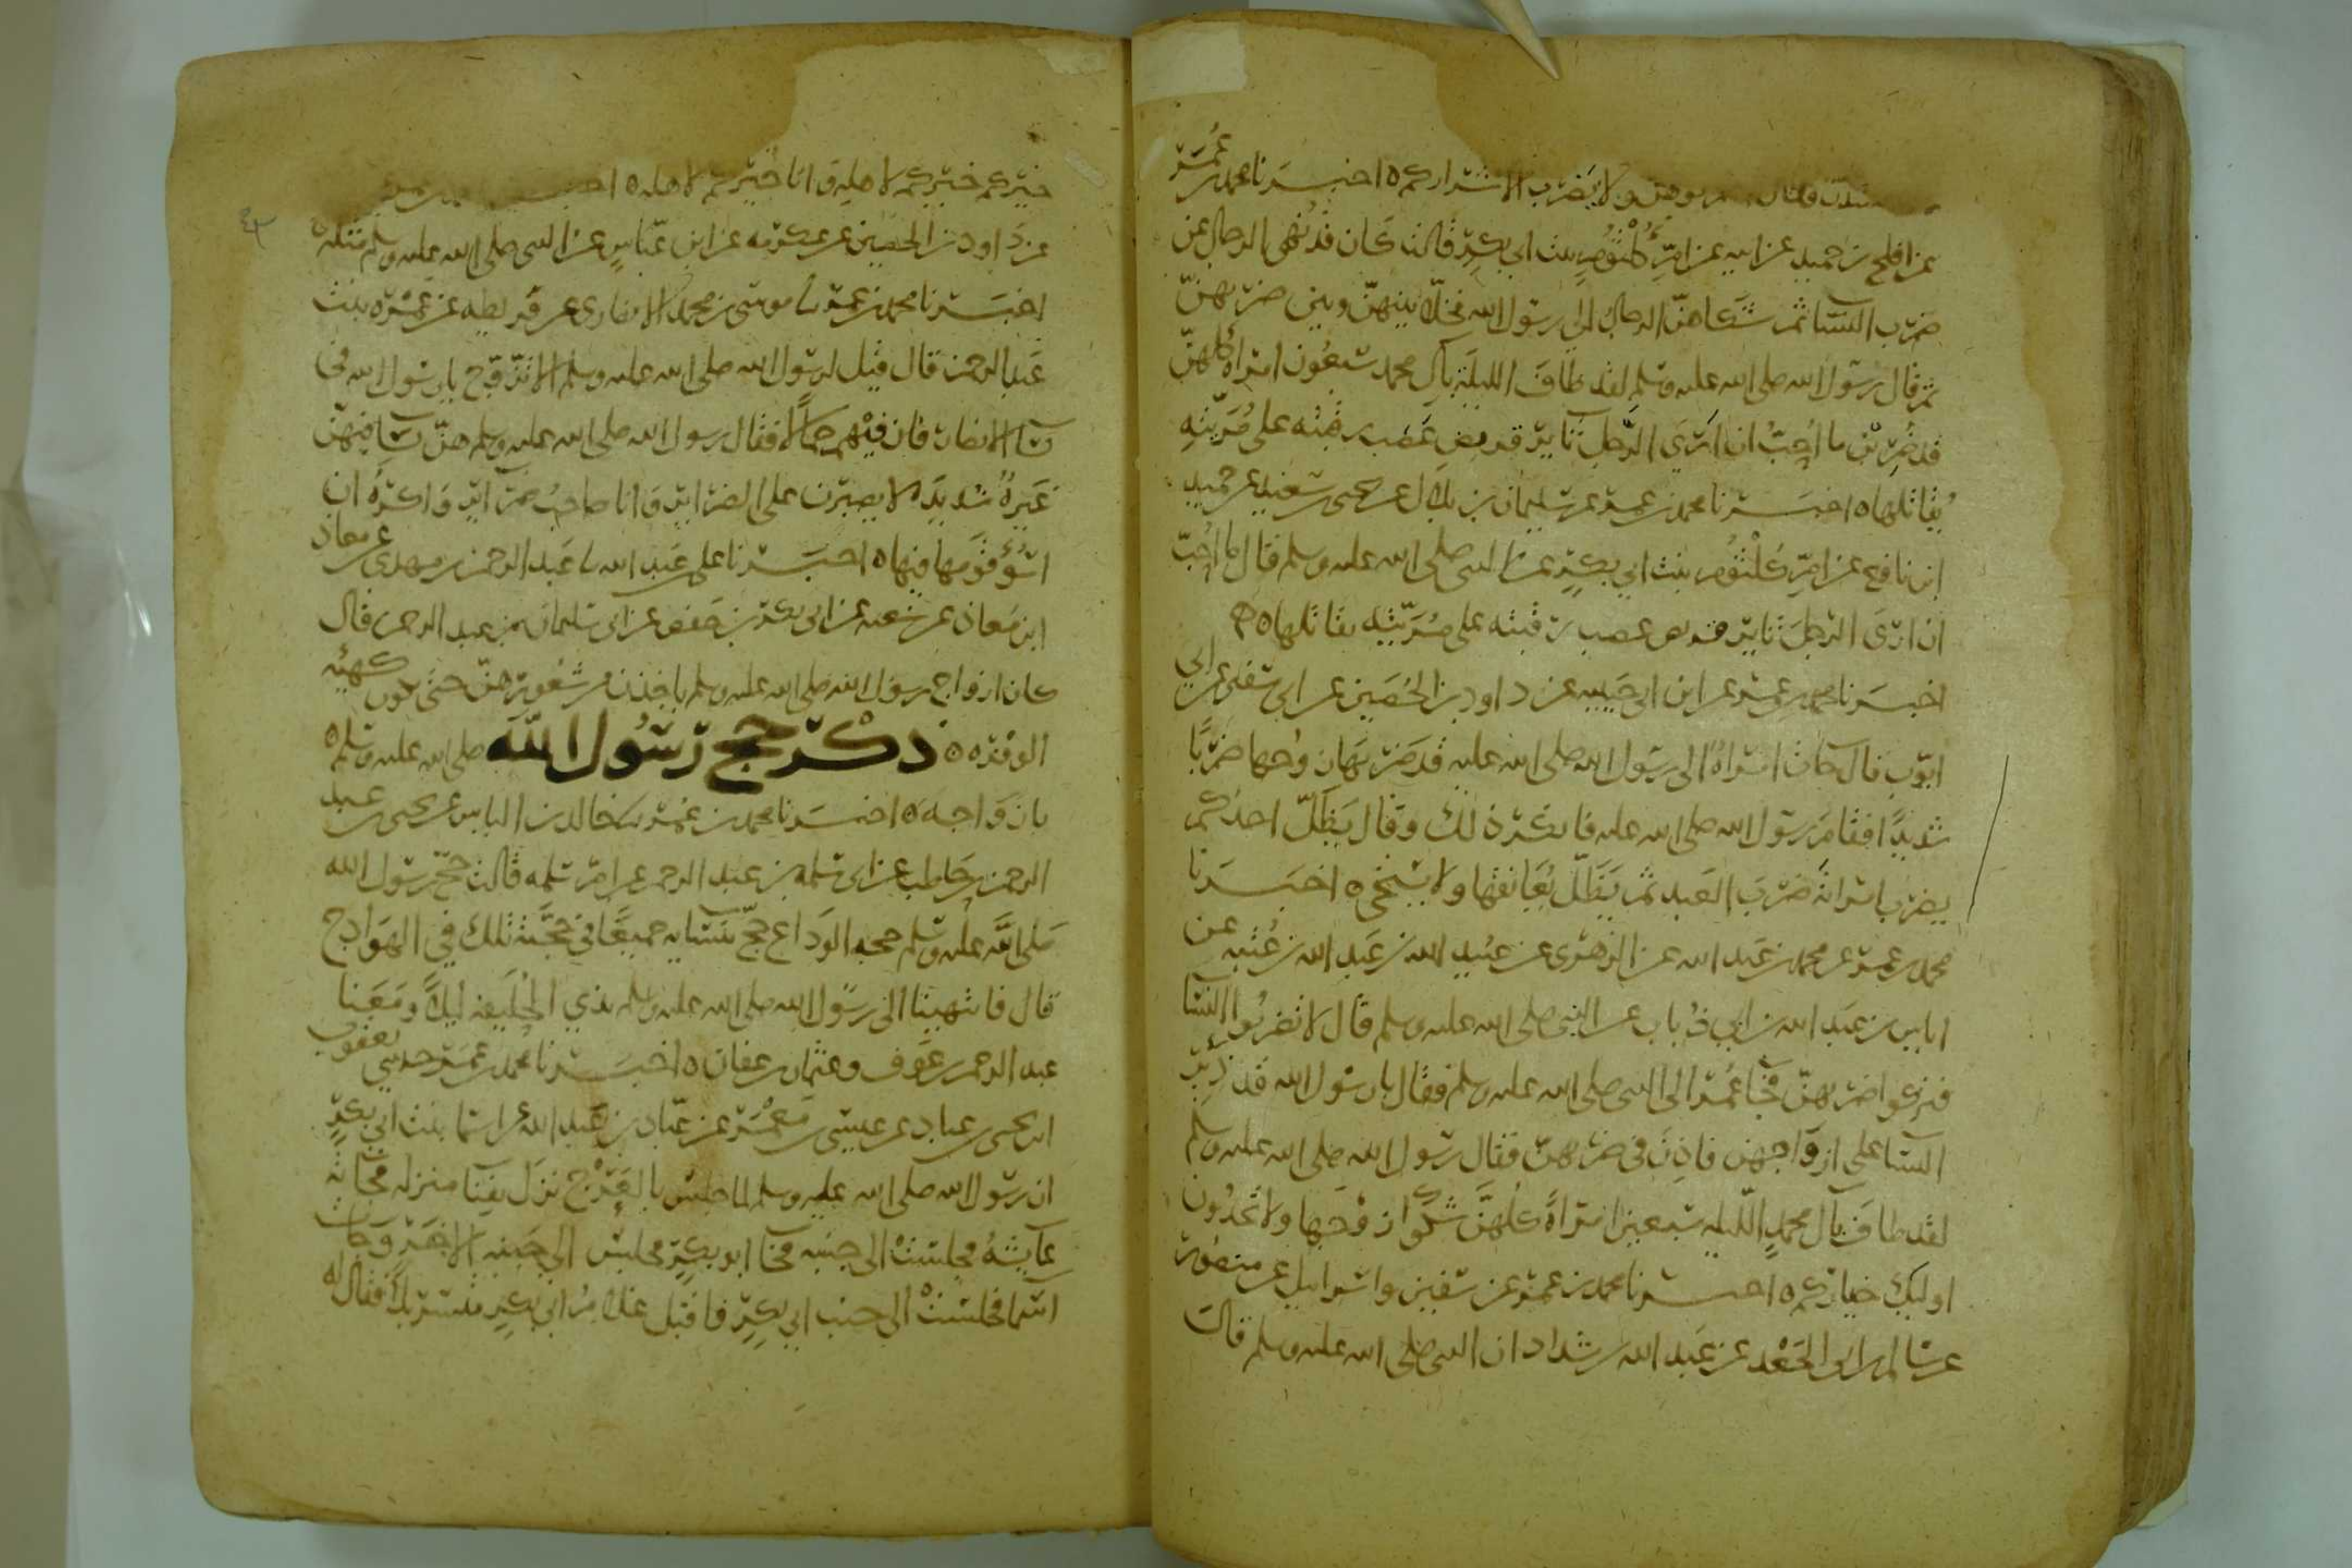 فقال اضربوهن ولا يضرب الا شراركم ه اخبرنا محمد بن عمر
عن افلح بن حميد عن ابيه عن ام كلثوم بنت ابي بكر قالت كان قد نهى الرجال عن
ضرب النسا ثم شكاهن الرجال الى رسول الله فخلا بينهن وبين ضربهن
ثم قال رسول الله صلى الله عليه وسلم لقد طاف الليلة بال محمد سبعون امراة كلهن
قد ضربن ما احب ان ارى الرجل ثايرا فريص عصب رقبته على مريته
يقاتلها ه اخبرنا محمد بن عمر عن سليمان بن بلال عن يحيى بن سعيد عن حميد
ابن نافع عن ام كلثوم بنت ابي بكر عن النبي صلى الله عليه وسلم قال ما احب
ان ارى الرجل ثايرا فريص عصب رقبته على مريته يقاتلها ه
اخبرنا محمد بن عمر عن ابن ابي حبيبه عن داود بن الحصين عن ابي سفين عن ابي
ايوب قال جات امراة الى رسول الله صلى الله عليه قد ضربها زوجها ضربا
شديدا فقام رسول الله صلى الله عليه فانكر ذلك وقال يظل احدكم
يضرب امراته ضرب العبد ثم يظل يعانقها ولا يستحي ه اخبرنا
محمد بن عمر عن محمد بن عبد الله عن الزهري عن عبيد الله بن عبد الله بن عتبه عن
اياس بن عبد الله بن ابي ذباب عن النبي صلى الله عليه وسلم قال لا تضربوا النسا
فتركوا ضربهن فجا عمر الى النبي صلى الله عليه وسلم فقال يارسول الله قد ذير
النسا على ازواجهن فاذن في ضربهن فقال رسول الله صلى الله عليه وسلم
لقد طاف بال محمد الليله سبعين امراة كلهن شكوا زوجها ولا تجدون
اوليك خياركم ه اخبرنا محمد بن عمر عن سفين واسرائيل عن منصور
عن سالم بن ابي الجعد عن عبد الله بن شداد ان النبي صلى الله عليه وسلم قال
خيركم خيركم لاهله وانا خيركم لاهله ه
عن داود بن الحصين عن عكرمه عن ابن عباس عن النبي صلى الله عليه وسلم مثله ه
اخبرنا محمد بن عمر نا موسى بن محمد الانصاري عن قريطه عن عمره بنت
عبد الرحمن قال قيل لرسول الله صلى الله عليه وسلم الا تتزوج يارسول الله في
نسا الانصار فان فيهم جمالا فقال رسول الله صلى الله عليه وسلم هن نسا فيهن
غيرة شديده لا يصبرن على الضراير وانا صاحب ضراير واكره ان
اسؤ قومها فيها ه اخبرنا علي بن عبد الله نا عبد الرحمن بن مهدي عن معاذ
ابن معاذ عن شعبه عن ابي بكر بن حفص عن ابي سلمان بن عبد الرحمن قال
كان ازواج رسول الله صلى الله عليه وسلم ياخذن من شعورهن حتى يكون كهيئه
الوفره ه ه ذكر حج رسول الله صلى الله عليه وسلم ه
بازواجه ه اخبرنا محمد بن عمر نا خالد بن الياس عن يحيى بن عبد
الرحمن بن حاطب عن ابي سلمه بن عبد الرحمن عن ام سلمه قالت حج رسول الله
صلى الله عليه وسلم حجه الوداع حج بنسايه جميعا في حجته تلك في الهوادج
قال فانتهينا الى رسول الله صلى الله عليه وسلم بذي الحليفه ليلا ومعنا
عبد الرحمن بن عوف وعثمان بن عفان ه اخبرنا محمد بن عمر حدثني يعقوب
ابن يحيى بن عباد عن عيسى بن معمر عن عباد بن عبد الله عن اسما بنت ابي بكر
ان رسول الله صلى الله عليه وسلم لما جلس بالعرج نزل بفنا منزله فجاته
عايشه فجلست الى جنبه فجا ابو بكر فجلس الى جنبه الاخر وجات
اسما فجلست الى جنب ابي بكر فاقبل غلام ابي بكر متسربلا فقال له